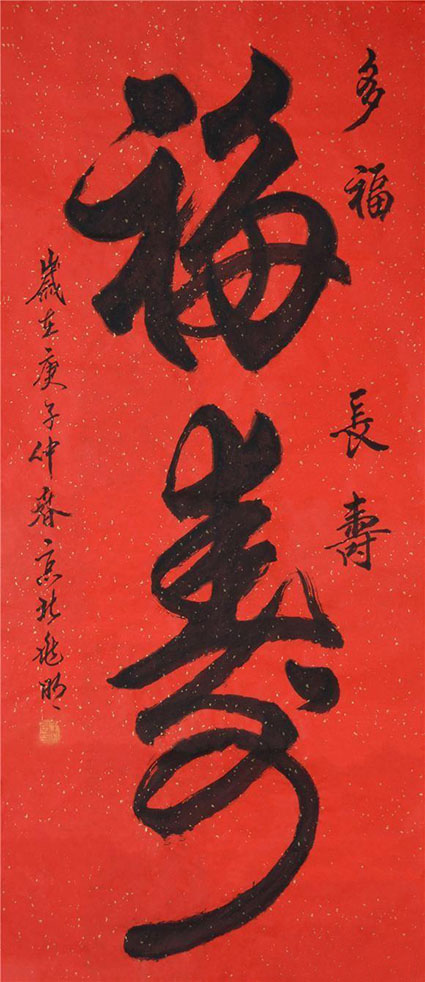 多福 長壽
福壽
歲在庚子仲春京北明